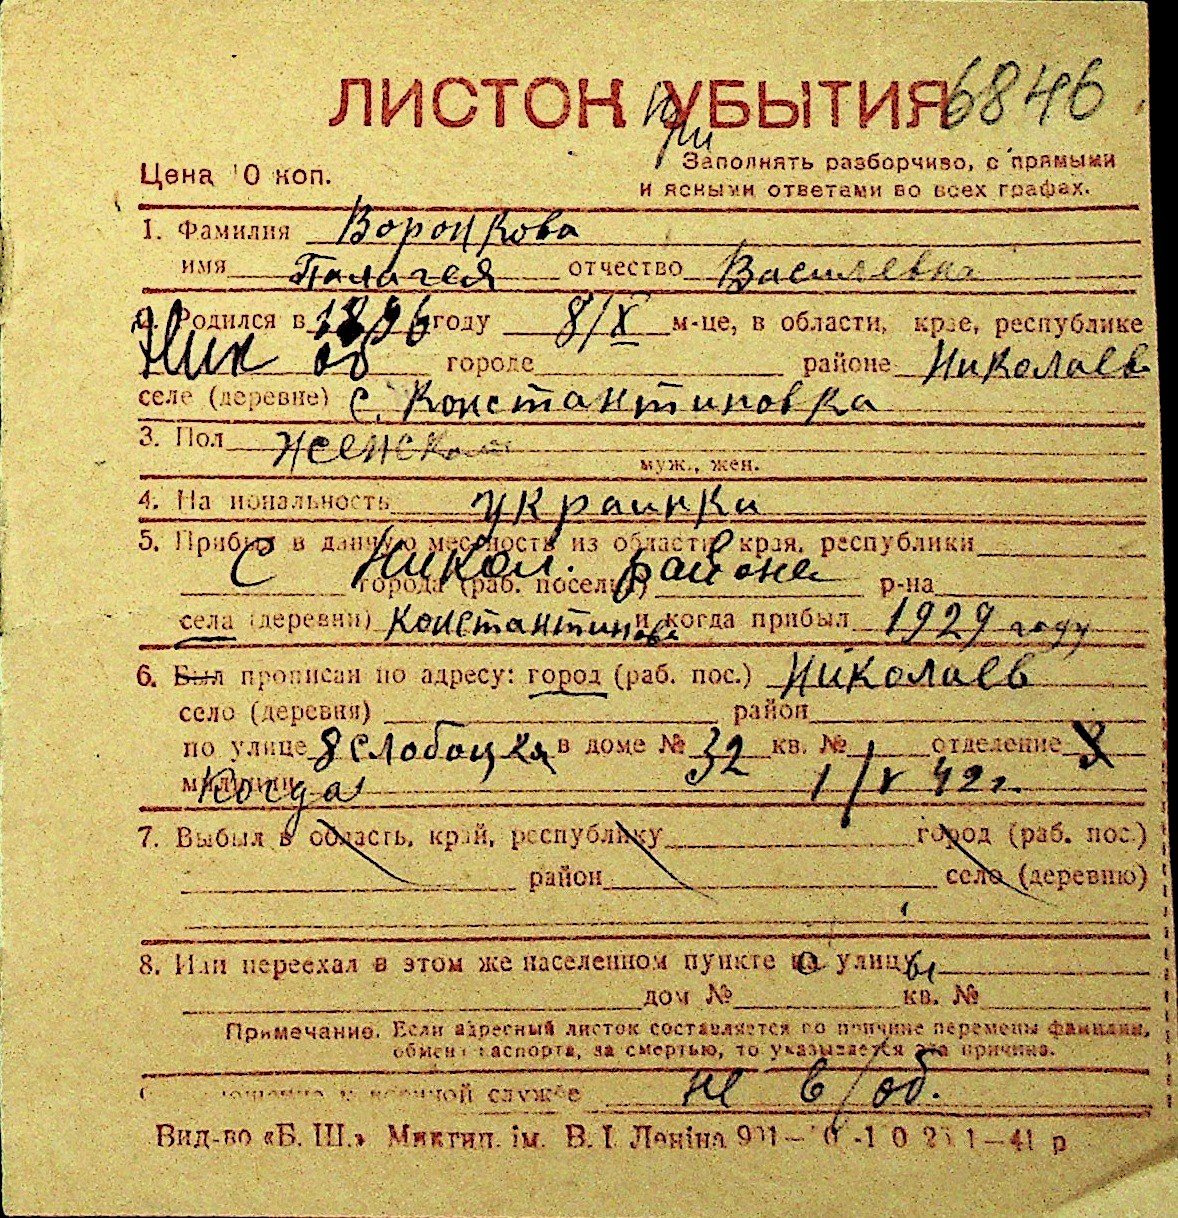 ЛИСТОК УБЫТИЯ 6846
При
Заполнять разборчиво, с прямыми
Цена 10 коп.
и ясными ответами во всех графах.
1. Фамилия Воронкова
имя Палагея отчество Василевна
2. Родился в 1896 году 8/X м-це, в области, крае, республике
Ник об городе районе Николаев
селе (деревне) с. Константиновка
3. Пол женский
муж., жен.
4. Национальность украинка
5. Прибыл в данную местность из области, края, республики
С Никол. района города (раб. поселка) р-на
села (деревни) Константиновка и когда прибыл 1929 году
6. Был прописан по адресу: город (раб. пос.) Николаев
село (деревня) район
по улице 8 слободская в доме № 32 кв. № 1 отделение
милиции Когда 1/V 42 г.
7. Выбыл в область, край, республику город (раб. пос.)
район село (деревню)
8. Или переехал в этом же населенном пункте на улицу
дом № кв. №
Примечание. Если адресный листок составляется по причине перемены фамилии,
обмена паспорта, за смертью, то указывается эта причина.
военной службе не в/об.
Вид-во «Б. Ш.» Миктип. ім. В. І. Леніна